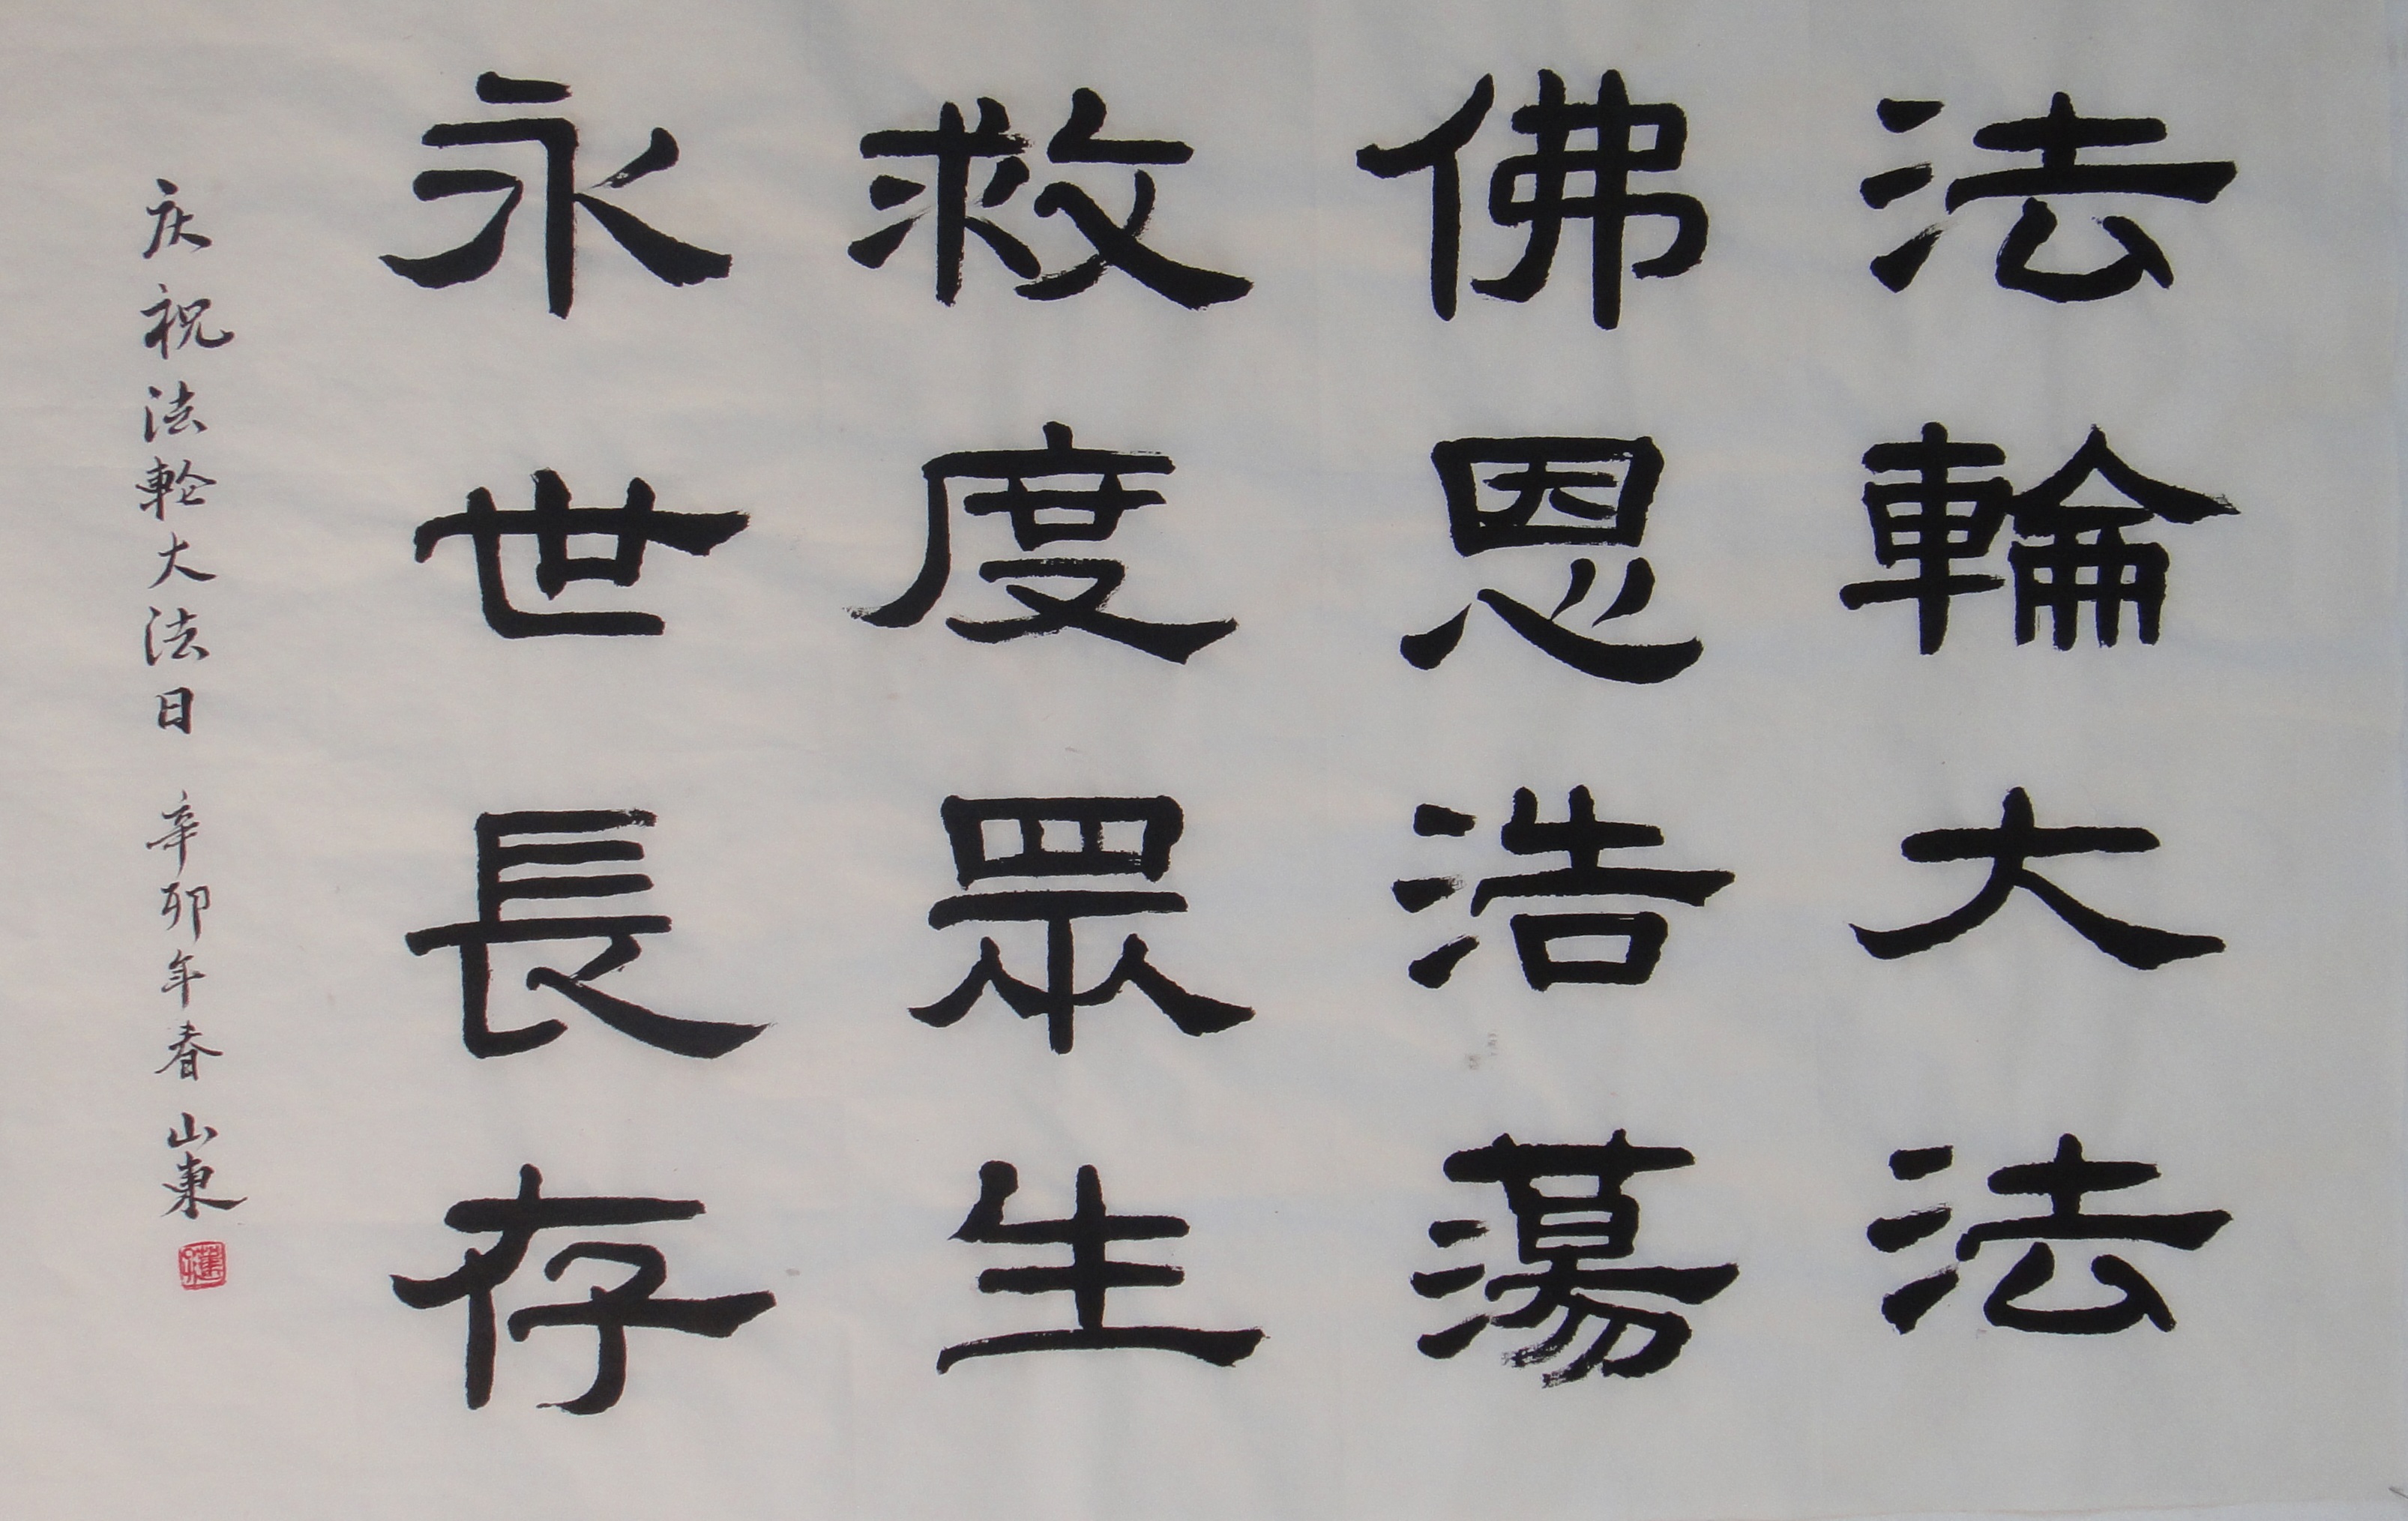 法輪大法
佛恩浩蕩
救度眾生
永世長存
庆祝法輪大法日 辛卯年春 山東